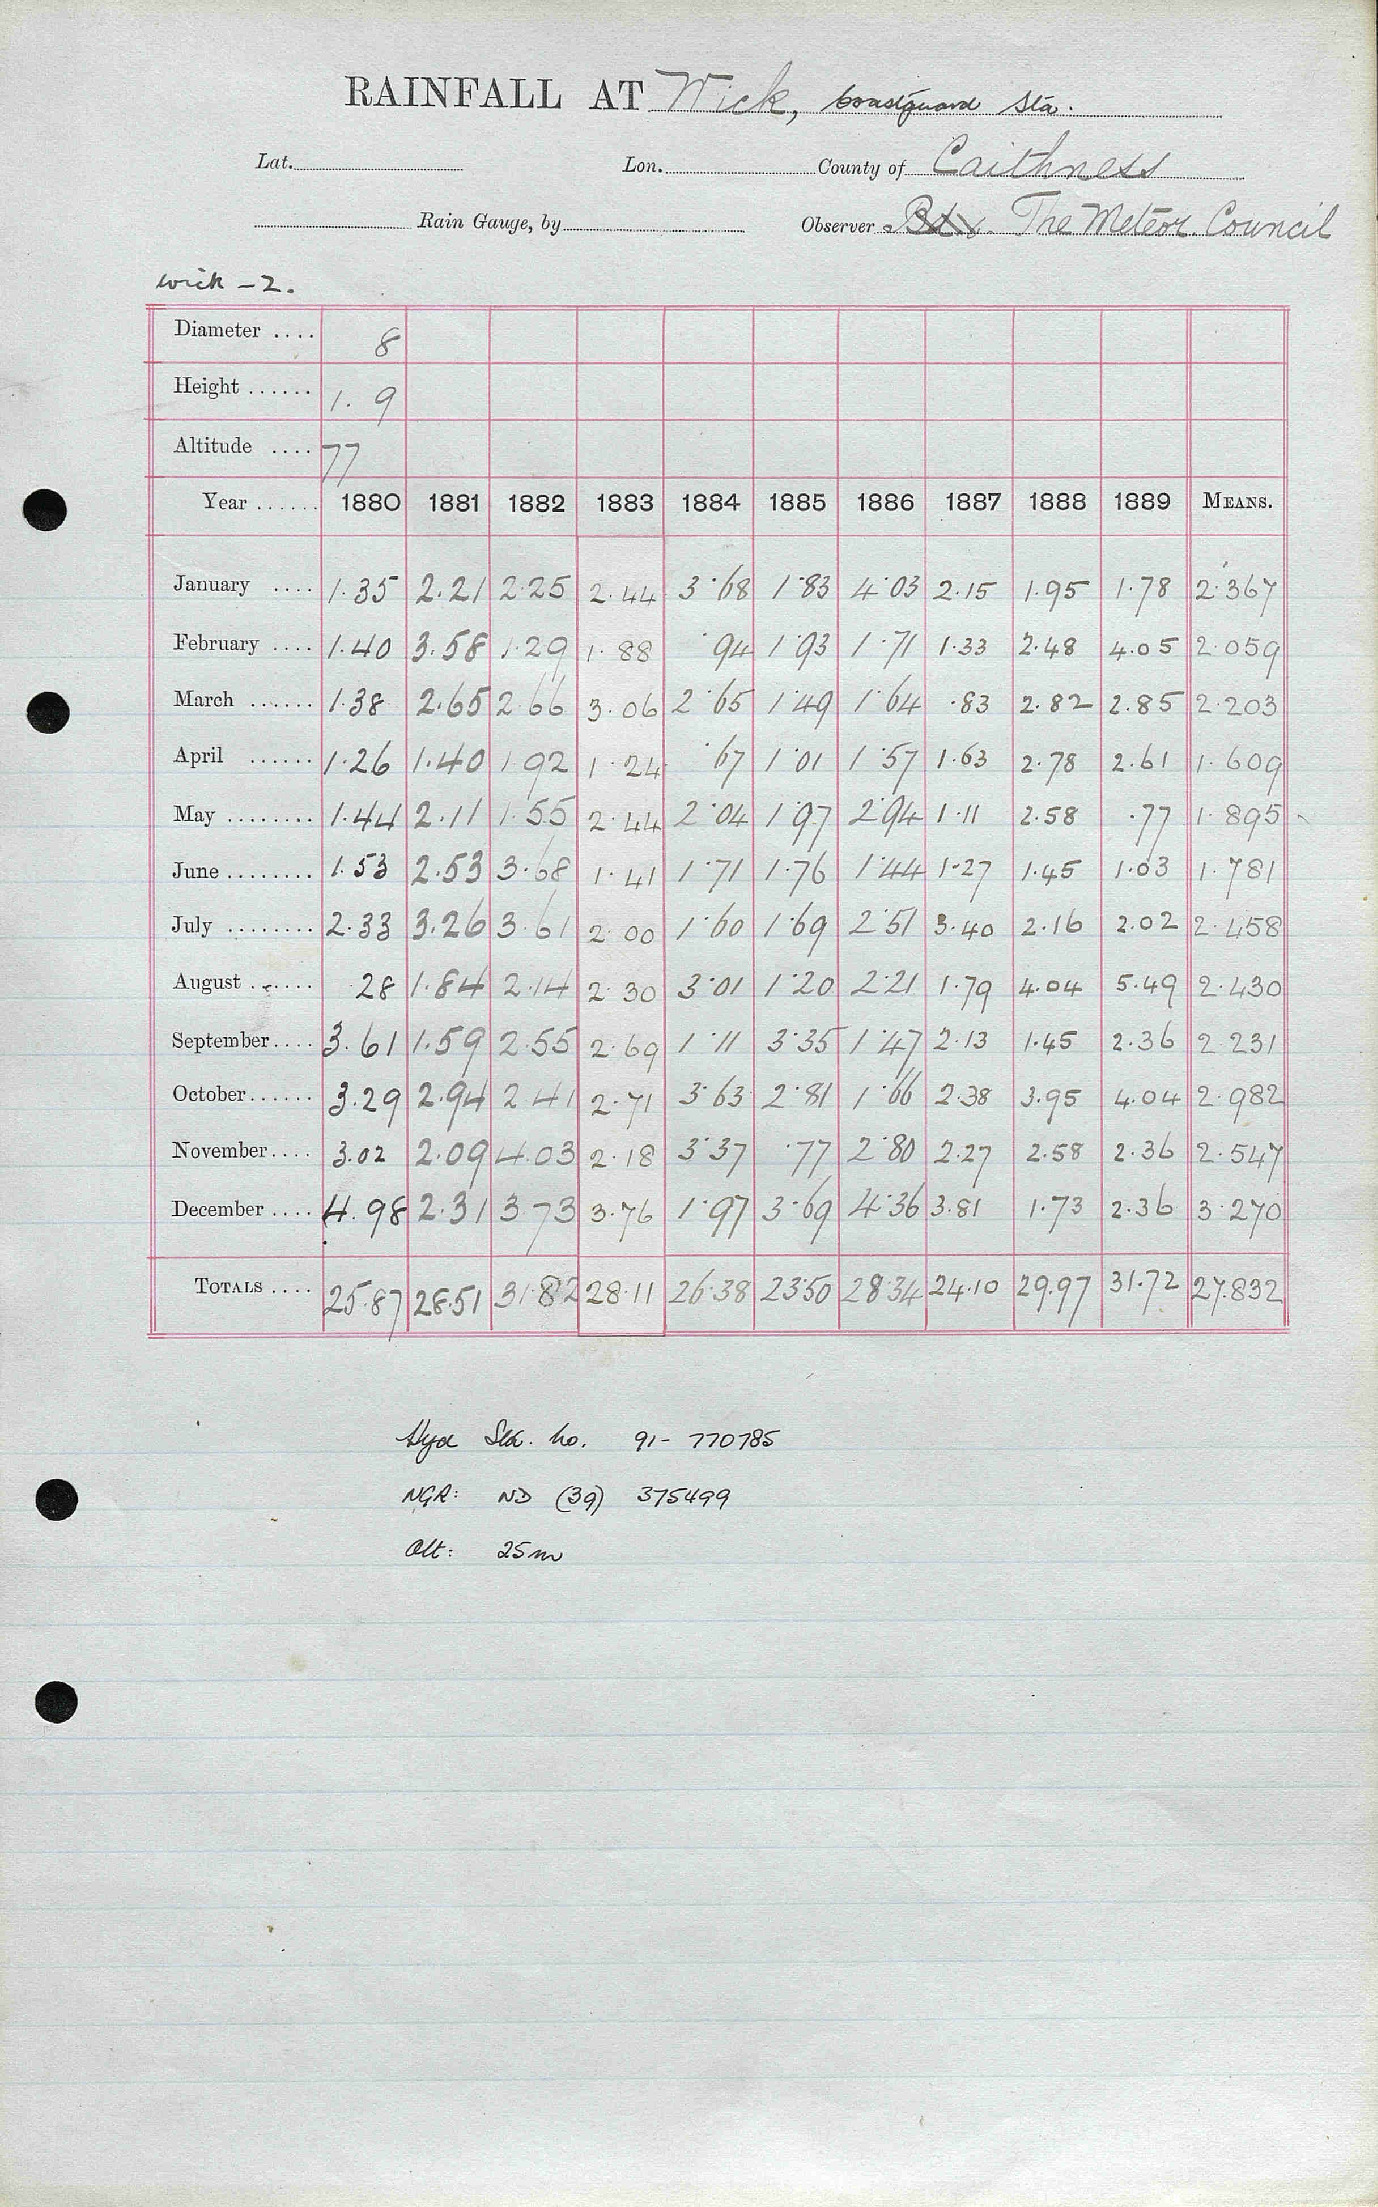 RAINFALL AT Wick, Coastguard Sta.
Lat. Lon. County of Caithness
Rain Gauge, by Observer The Meteor. Council
Wick - 2.
Diameter .... 8
Height ...... 1. 9
Altitude .... 77
Year ...... 1880 1881 1882 1883 1884 1885 1886 1887 1888 1889 MEANS.
January .... 1.35 2.21 2.25 2.44 3.68 1.83 4.03 2.15 1.95 1.78 2.367
February .... 1.40 3.58 1.29 1.88 .94 1.93 1.71 1.33 2.48 4.05 2.059
March ...... 1.38 2.65 2.66 3.06 2.65 1.49 1.64 .83 2.82 2.85 2.203
April ...... 1.26 1.40 1.92 1.24 .67 1.01 1.57 1.63 2.78 2.61 1.609
May ........ 1.44 2.11 1.55 2.44 2.04 1.97 2.94 1.11 2.58 .77 1.895
June ........ 1.53 2.53 3.68 1.41 1.71 1.76 1.44 1.27 1.45 1.03 1.781
July ........ 2.33 3.26 3.61 2.00 1.60 1.69 2.51 3.40 2.16 2.02 2.458
August ...... .28 1.84 2.14 2.30 3.01 1.20 2.21 1.79 4.04 5.49 2.430
September.... 3.61 1.59 2.55 2.69 1.11 3.35 1.47 2.13 1.45 2.36 2.231
October...... 3.29 2.94 2.41 2.71 3.63 2.81 1.66 2.38 3.95 4.04 2.982
November.... 3.02 2.09 4.03 2.18 3.37 .77 2.80 2.27 2.58 2.36 2.547
December .... 4.98 2.31 3.73 3.76 1.97 3.69 4.36 3.81 1.73 2.36 3.270
TOTALS .... 25.87 28.51 31.82 28.11 26.38 23.50 28.34 24.10 29.97 31.72 27.832
Hyd Sta. No. 91- 770785
NGR: ND (39) 375499
Alt: 25m